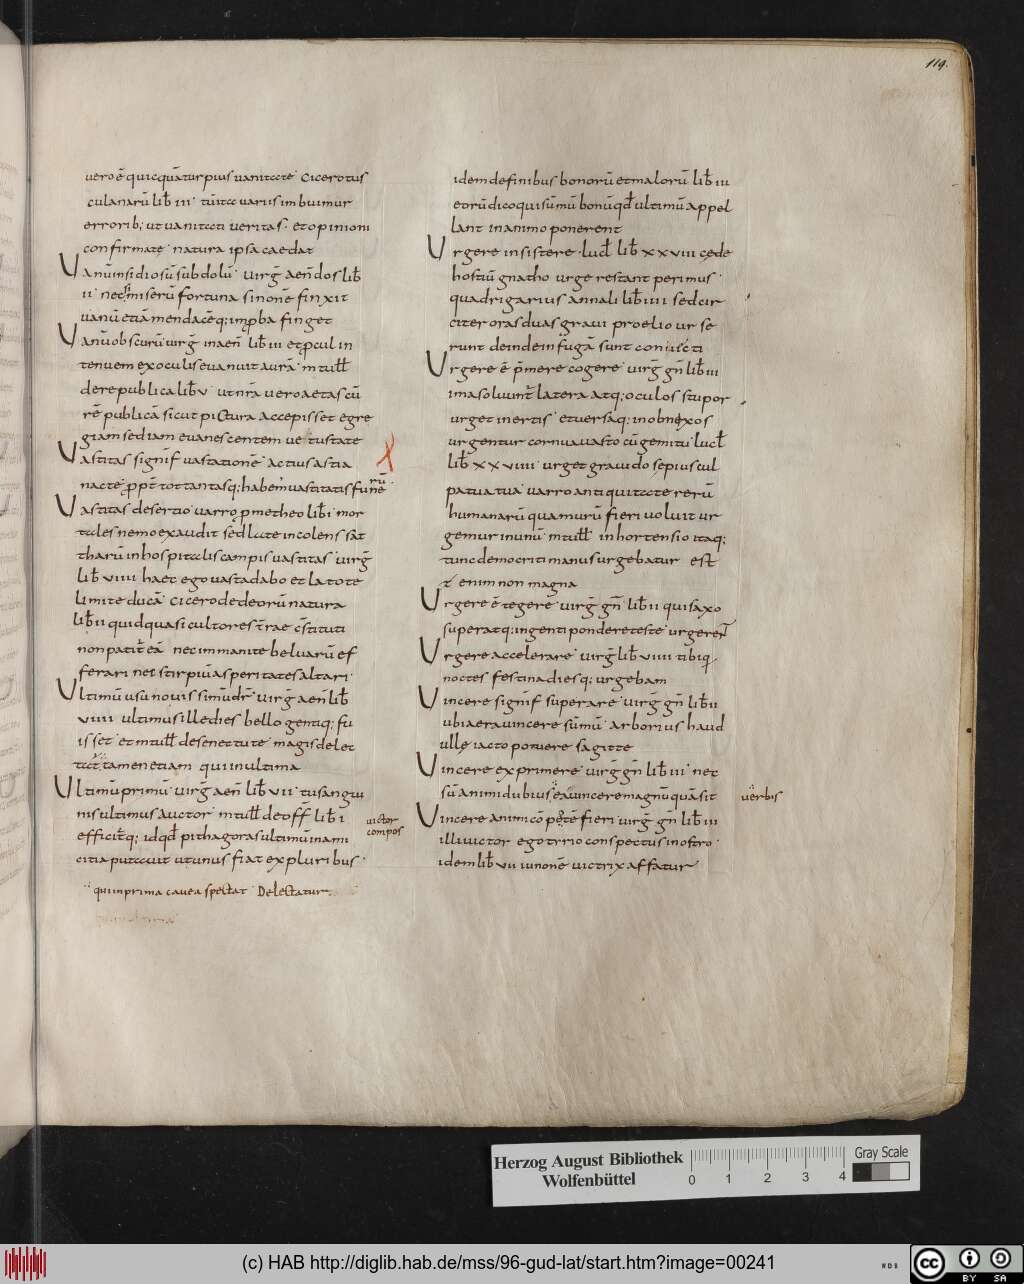 119.
vero ē quicquā turpius vanitate· Cicero tus
culanarū lib̄ III· tū ita variis imbuimur
errorib; ut vanitati veritas· et opinioni
confirmatę natura ipsa caedat
Vanū insidiosū subdolū· virḡ aeñ dos lib̄
II· nec si miserū fortuna sinonē finxit
vanū etiā mendacēq; improba finget
Vanū obscurū virḡ in aeñ lib̄ III et procul in
tenuem ex oculis evanuit aurā· m tull̄
de re publica lib̄ v· ut nr̄a vero aetas cū
rē publicā sicut picturā accepisset egre
giam sed iam evanescentem vetustate
Vastitas signif̄ vastationē· Accius astia
nacte· ꝓpt̄ tot tantasq; habem̄ vastitatis funerū
Vastitas desertio· varro pmetheo lib̄ I· mor
tales nemo exaudit sed late incolens sat
tharū inhospitalis campis vastitas· virḡ
lib̄ VIIII· haec ego vasta dabo et lato te
limite ducā· Cicero de deorū natura
lib̄ II quid quasi cultores t̄rae c̄stituti
non patit̄ eā nec immanite beluarū ef
ferari nec stirpiū asperitates altari·
Ultimū usu novissimū dr̄· virḡ aeñ lib̄
VIIII· ultimus ille dies bello gentiq; fu
isset· et m tull̄ de senectute· magis delec
tat̄ tamen etiam qui in ultima
Ultimū primū· virḡ aeñ lib̄ VII· tu sangui
nis ultimus auctor· m tull̄ de off̄ lib̄ I
victor
compos
efficit̄q; id qd̄ pithagoras ultimū in ami
citia putavit ut unus fiat ex pluribus·
qui in prima cavea spectat· Delectatur·
idem de finibus bonorū et malorū lib̄ III
et rū dico qui sūmū bonū qd̄ ultimū appel
lant in animo ponerent
Urgere insistere· lucl̄ lib̄ XXVIII cede
hostiū gnatho urge restant perimus·
quadrigarius annali lib̄ IIII sed cir
citer oras duas gravi proelio urse
runt deinde in fugā sunt coniecti
Urgere ē p̄mere cogere· virḡ gñ lib̄ III
ima solvunt̄ latera atq; oculos stupor
urget inertis· et versaq; in obnixos
urgentur cornua vasto cū gemitu· lucl̄
lib̄ XXVIIII· urget gravido sepius cul
patua tua· varro antiquitate rerū
humanarū quā murū fieri voluit ur
gemur in unū· m tull̄ in hortensio itaq;
tunc democriti manus urgebatur est
t̄ enim non magna
Urgere ē tegere· virḡ gñ lib̄ II qui saxo
super atq; ingenti pondere teste urgerent
Urgere accelerare· virḡ lib̄ VIIII tibi q;
noctes festina diesq; urgebam
Vincere signif̄ superare· virḡ gñ lib̄ II
ubi aera vincere sūmū· arboris haud
ullę iacto potuere sagitte
Vincere exprimere· virḡ gñ lib̄ III· nec
sū animi dubius ea vincere magnū quā sit
verbis
Vincere animi cōpotē fieri· virḡ gñ lib̄ III
illi victor ego tyrio conspectus in ostro·
idem lib̄ VII iunonē victrix affatur
Herzog August Bibliothek
Wolfenbüttel
0 1 2 3 4
Gray Scale
(c) HAB http://diglib.hab.de/mss/96-gud-lat/start.htm?image=00241
WDB
cc BY SA